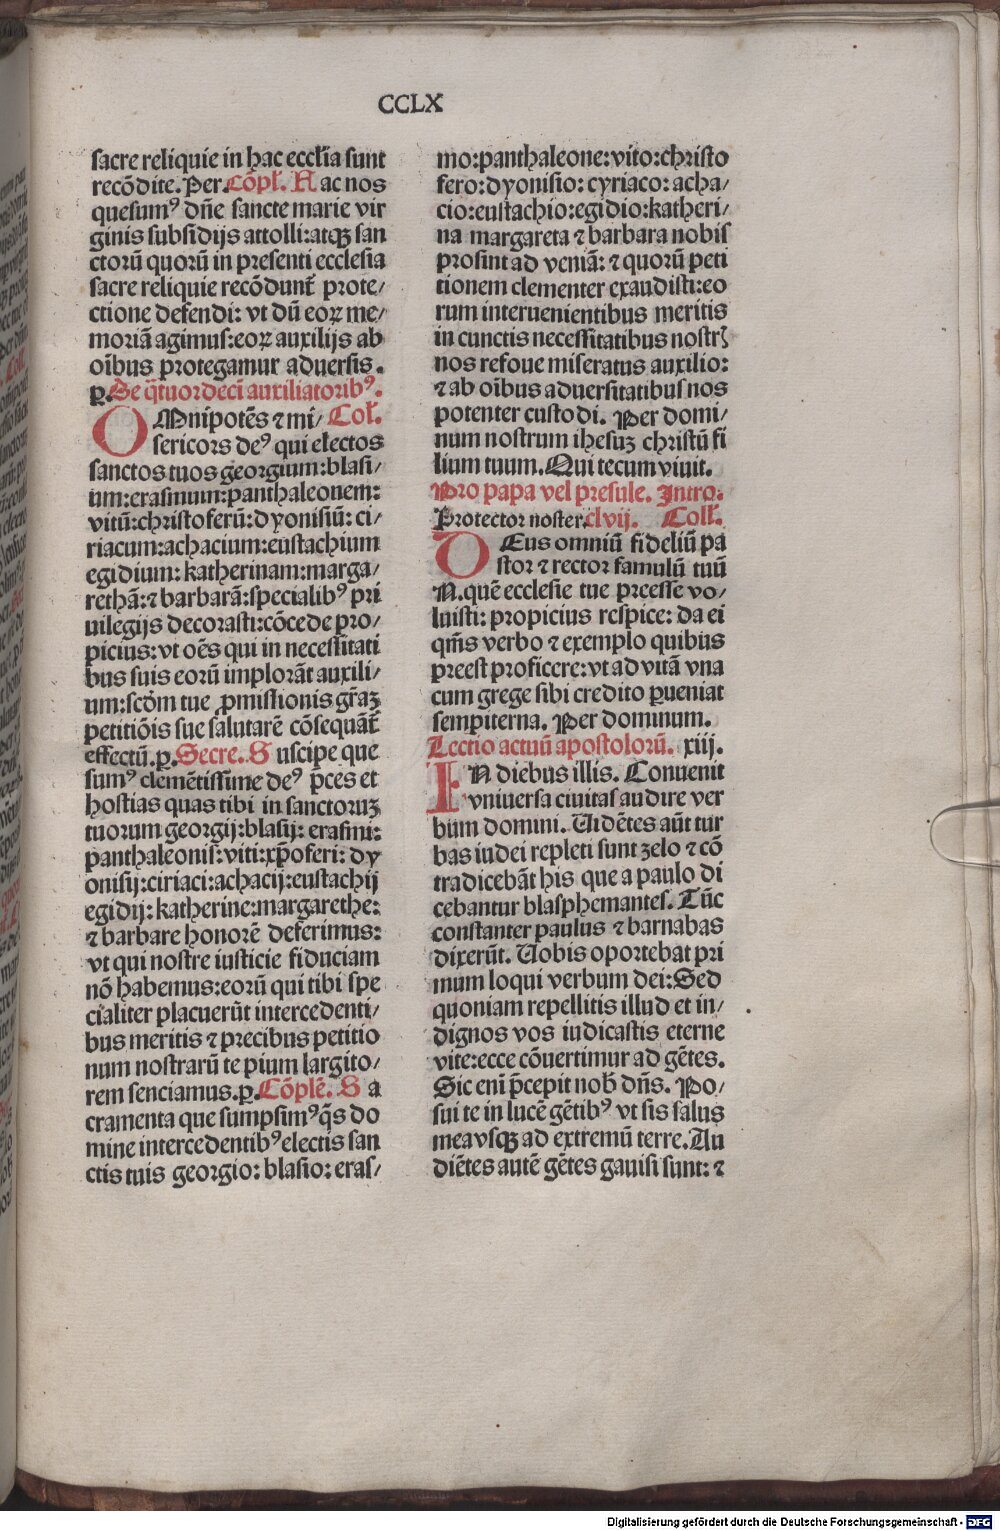 CCLX
sacre reliquie in hac eccl'ia sunt
recõdite. Per. Cõpl'. Hac nos
quesumꝰ dñe sancte marie vir
ginis subsidijs attolli: atqꝫ san
ctorũ quorũ in presenti ecclesia
sacre reliquie recõdunt̃ prote/
ctione defendi: vt dũ eoꝝ me/
moriã agimus: eoꝝ auxilijs ab
oĩbus protegamur aduersis.
p. De q̃tuordeci auxiliatoribꝰ.
OMnipotẽs ⁊ mi/ Col'.
sericors deꝰ qui electos
sanctos tuos georgium: blasi/
um: erasmum: panthaleonem:
vitũ: christoferũ: dyonisiũ: ci/
riacum: achacium: eustachium
egidium: katherinam: marga/
rethã: ⁊ barbarã: specialibꝰ pri
uilegijs decorasti: cõcede pro/
picius: vt oẽs qui in necessitati
bus suis eorũ implorãt auxili/
um: scd'm tue ꝓmissionis gr̃aꝫ
petitiõis sue salutarẽ cõsequãt̃
effectũ. p. Secre. Suscipe que
sumꝰ clemẽtissime deꝰ p̃ces et
hostias quas tibi in sanctoruꝫ
tuorum georgij: blasij: erasmi:
panthaleonis: viti: xp̃oferi: dy
onisij: ciriaci: achacij: eustachij
egidij: katherine: margarethe:
⁊ barbare honorẽ deferimus:
vt qui nostre iusticie fiduciam
nõ habemus: eorũ qui tibi spe
cialiter placuerũt intercedenti/
bus meritis ⁊ precibus petitio
num nostrarũ te pium largito/
rem senciamus. p. Cõplẽ. Sa
cramenta que sumpsimꝰ q̃s do
mine intercedentibꝰ electis san
ctis tuis georgio: blasio: eras/
mo: panthaleone: vito: christo
fero: dyonisio: cyriaco: acha/
cio: eustachio: egidio: katheri/
na margareta ⁊ barbara nobis
prosint ad veniã: ⁊ quorũ peti
tionem clementer exaudisti: eo
rum interuenientibus meritis
in cunctis necessitatibus nostrꝭ
nos refoue miseratus auxilio:
⁊ ab oĩbus aduersitatibus nos
potenter custodi. Per domi/
num nostrum ihesuꝫ christũ fi
lium tuum. Qui tecum viuit.
Pro papa vel presule. Intro.
Protector noster. clvij. Coll'.
DEus omniũ fideliũ pa
stor ⁊ rector famulũ tuũ
N. quẽ ecclesie tue preesse vo/
luisti: propicius respice: da ei
qm̃s verbo ⁊ exemplo quibus
preest proficere: vt ad vitã vna
cum grege sibi credito ꝑueniat
sempiterna. Per dominum.
Lectio actuũ apostolorũ. xiij.
IN diebus illis. Conuenit
vniuersa ciuitas audire ver
bum domini. Uidẽtes aũt tur
bas iudei repleti sunt zelo ⁊ cõ
tradicebãt his que a paulo di
cebantur blasphemantes. Tũc
constanter paulus ⁊ barnabas
dixerũt. Uobis oportebat pri
mum loqui verbum dei: Sed
quoniam repellitis illud et in/
dignos vos iudicastis eterne
vite: ecce cõuertimur ad gẽtes.
Sic eni p̃cepit nob̃ dñs. Po/
sui te in lucẽ gẽtibꝰ vt sis salus
mea vsqꝫ ad extremũ terre. Au
diẽtes autẽ gẽtes gauisi sunt: ⁊
Digitalisierung gefördert durch die Deutsche Forschungsgemeinschaft - DFG